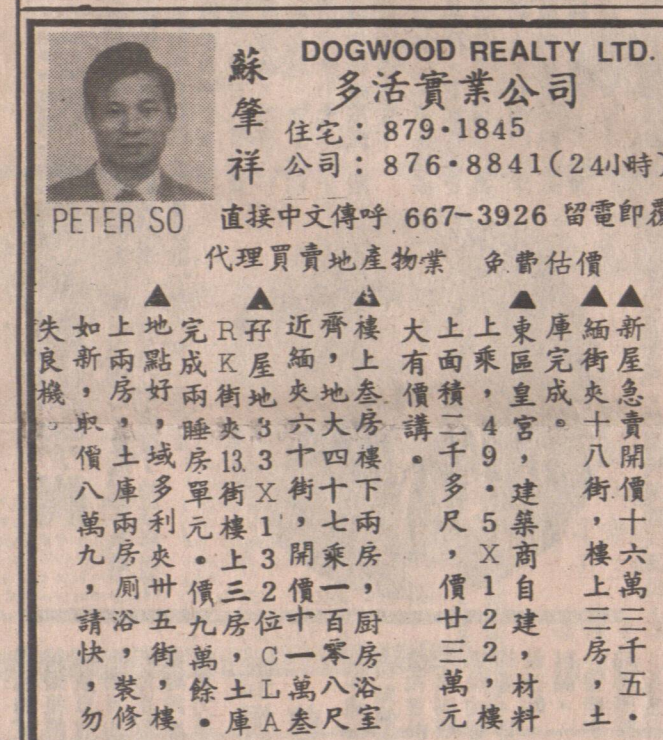 DOGWOOD REALTY LTD.
多活實業公司
蘇肇祥
住宅：879·1845
公司：876·8841(24小時)
PETER SO
直接中文傳呼 667-3926 留電即覆
代理買賣地產物業 免費估價
▲新屋急賣開價十六萬三千五。
▲緬街夾十八街，樓上三房，土
庫完成。
▲東區皇宮，建築商自建，材料
上乘，49．5X122，樓
上面積二千多尺，價廿三萬元
大有價講。
▲樓上叁房樓下兩房，厨房浴室
齊，地大四十七乘一百零八尺
近緬夾六十街，開價十一萬叁
▲孖屋地33X132位CLA
RK街夾13街樓上三房，土庫
完成兩睡房單元。價九萬餘。
▲地點好，域多利夾卅五街，樓
上兩房，土庫兩房厠浴，裝修
如新，取價八萬九，請快，勿
失良機。